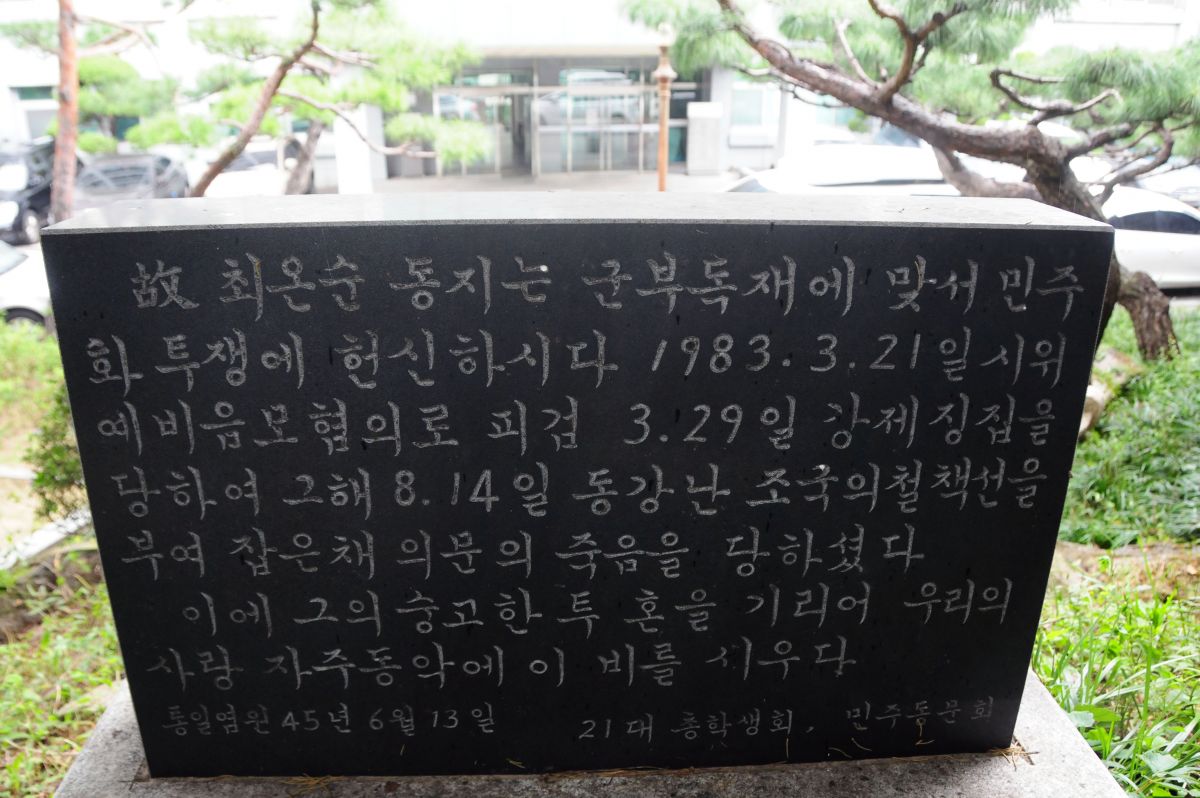 故 최온순 동지는 군부독재에 맞서 민주
화 투쟁에 헌신하시다 1983.3.21일 시위
예비음모혐의로 피검 3.29일 강제징집을
당하여 그해 8.14일 동강난 조국의철책선을
부여 잡은채 의문의 죽음을 당하셨다
이에 그의 숭고한 투혼을 기리어 우리의
사랑 자주동악에 이 비를 시우다
통일염원 45년 6월 13일 21대 총학생회, 민주동문회